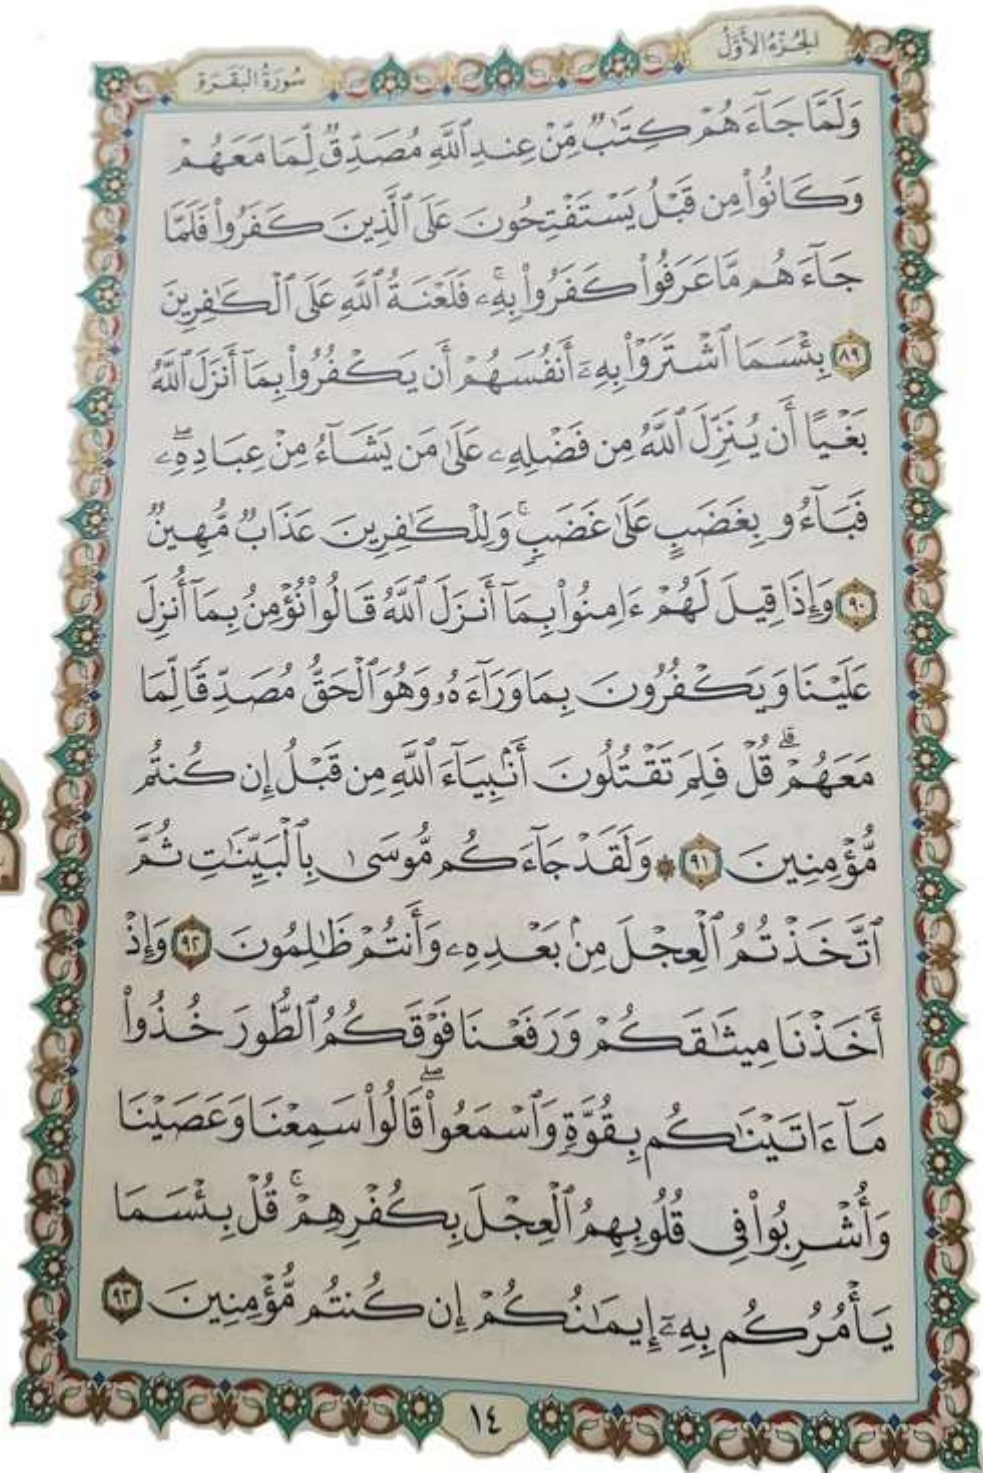 الجُزْءُ الأَوَّلُ
سُورَةُ البَقَرَةِ
وَلَمَّا جَآءَهُمْ كِتَٰبٌ مِّنْ عِندِ ٱللَّهِ مُصَدِّقٌ لِّمَا مَعَهُمْ
وَكَانُوا۟ مِن قَبْلُ يَسْتَفْتِحُونَ عَلَى ٱلَّذِينَ كَفَرُوا۟ فَلَمَّا
جَآءَهُم مَّا عَرَفُوا۟ كَفَرُوا۟ بِهِۦ ۚ فَلَعْنَةُ ٱللَّهِ عَلَى ٱلْكَٰفِرِينَ
٨٩ بِئْسَمَا ٱشْتَرَوْا۟ بِهِۦٓ أَنفُسَهُمْ أَن يَكْفُرُوا۟ بِمَآ أَنزَلَ ٱللَّهُ
بَغْيًا أَن يُنَزِّلَ ٱللَّهُ مِن فَضْلِهِۦ عَلَىٰ مَن يَشَآءُ مِنْ عِبَادِهِۦ ۖ
فَبَآءُو بِغَضَبٍ عَلَىٰ غَضَبٍ ۚ وَلِلْكَٰفِرِينَ عَذَابٌ مُّهِينٌ
٩٠ وَإِذَا قِيلَ لَهُمْ ءَامِنُوا۟ بِمَآ أَنزَلَ ٱللَّهُ قَالُوا۟ نُؤْمِنُ بِمَآ أُنزِلَ
عَلَيْنَا وَيَكْفُرُونَ بِمَا وَرَآءَهُۥ وَهُوَ ٱلْحَقُّ مُصَدِّقًا لِّمَا
مَعَهُمْ ۗ قُلْ فَلِمَ تَقْتُلُونَ أَنۢبِيَآءَ ٱللَّهِ مِن قَبْلُ إِن كُنتُم
مُّؤْمِنِينَ ٩١ ۞ وَلَقَدْ جَآءَكُم مُّوسَىٰ بِٱلْبَيِّنَٰتِ ثُمَّ
ٱتَّخَذْتُمُ ٱلْعِجْلَ مِنۢ بَعْدِهِۦ وَأَنتُمْ ظَٰلِمُونَ ٩٢ وَإِذْ
أَخَذْنَا مِيثَٰقَكُمْ وَرَفَعْنَا فَوْقَكُمُ ٱلطُّورَ خُذُوا۟
مَآ ءَاتَيْنَٰكُم بِقُوَّةٍ وَٱسْمَعُوا۟ ۖ قَالُوا۟ سَمِعْنَا وَعَصَيْنَا
وَأُشْرِبُوا۟ فِى قُلُوبِهِمُ ٱلْعِجْلَ بِكُفْرِهِمْ ۚ قُلْ بِئْسَمَا
يَأْمُرُكُم بِهِۦٓ إِيمَٰنُكُمْ إِن كُنتُم مُّؤْمِنِينَ ٩٣
١٤